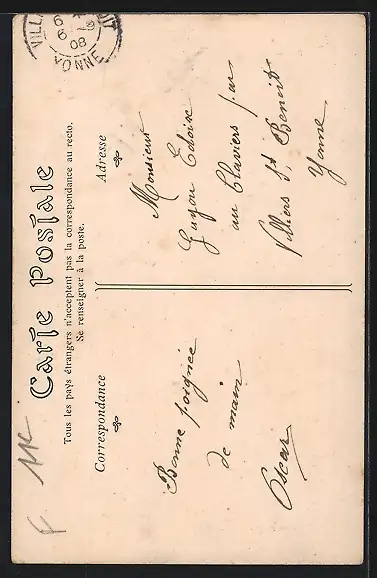 Carte Postale
Tous les pays étrangers n'acceptent pas la correspondance au recto.
Se renseigner à la poste.
Correspondance
Adresse
Bonne poignée
de main
Oscar
Monsieur
Guyou
au Claviers par
Villiers St Benoit
Yonne
VILL
6
08
YONNE